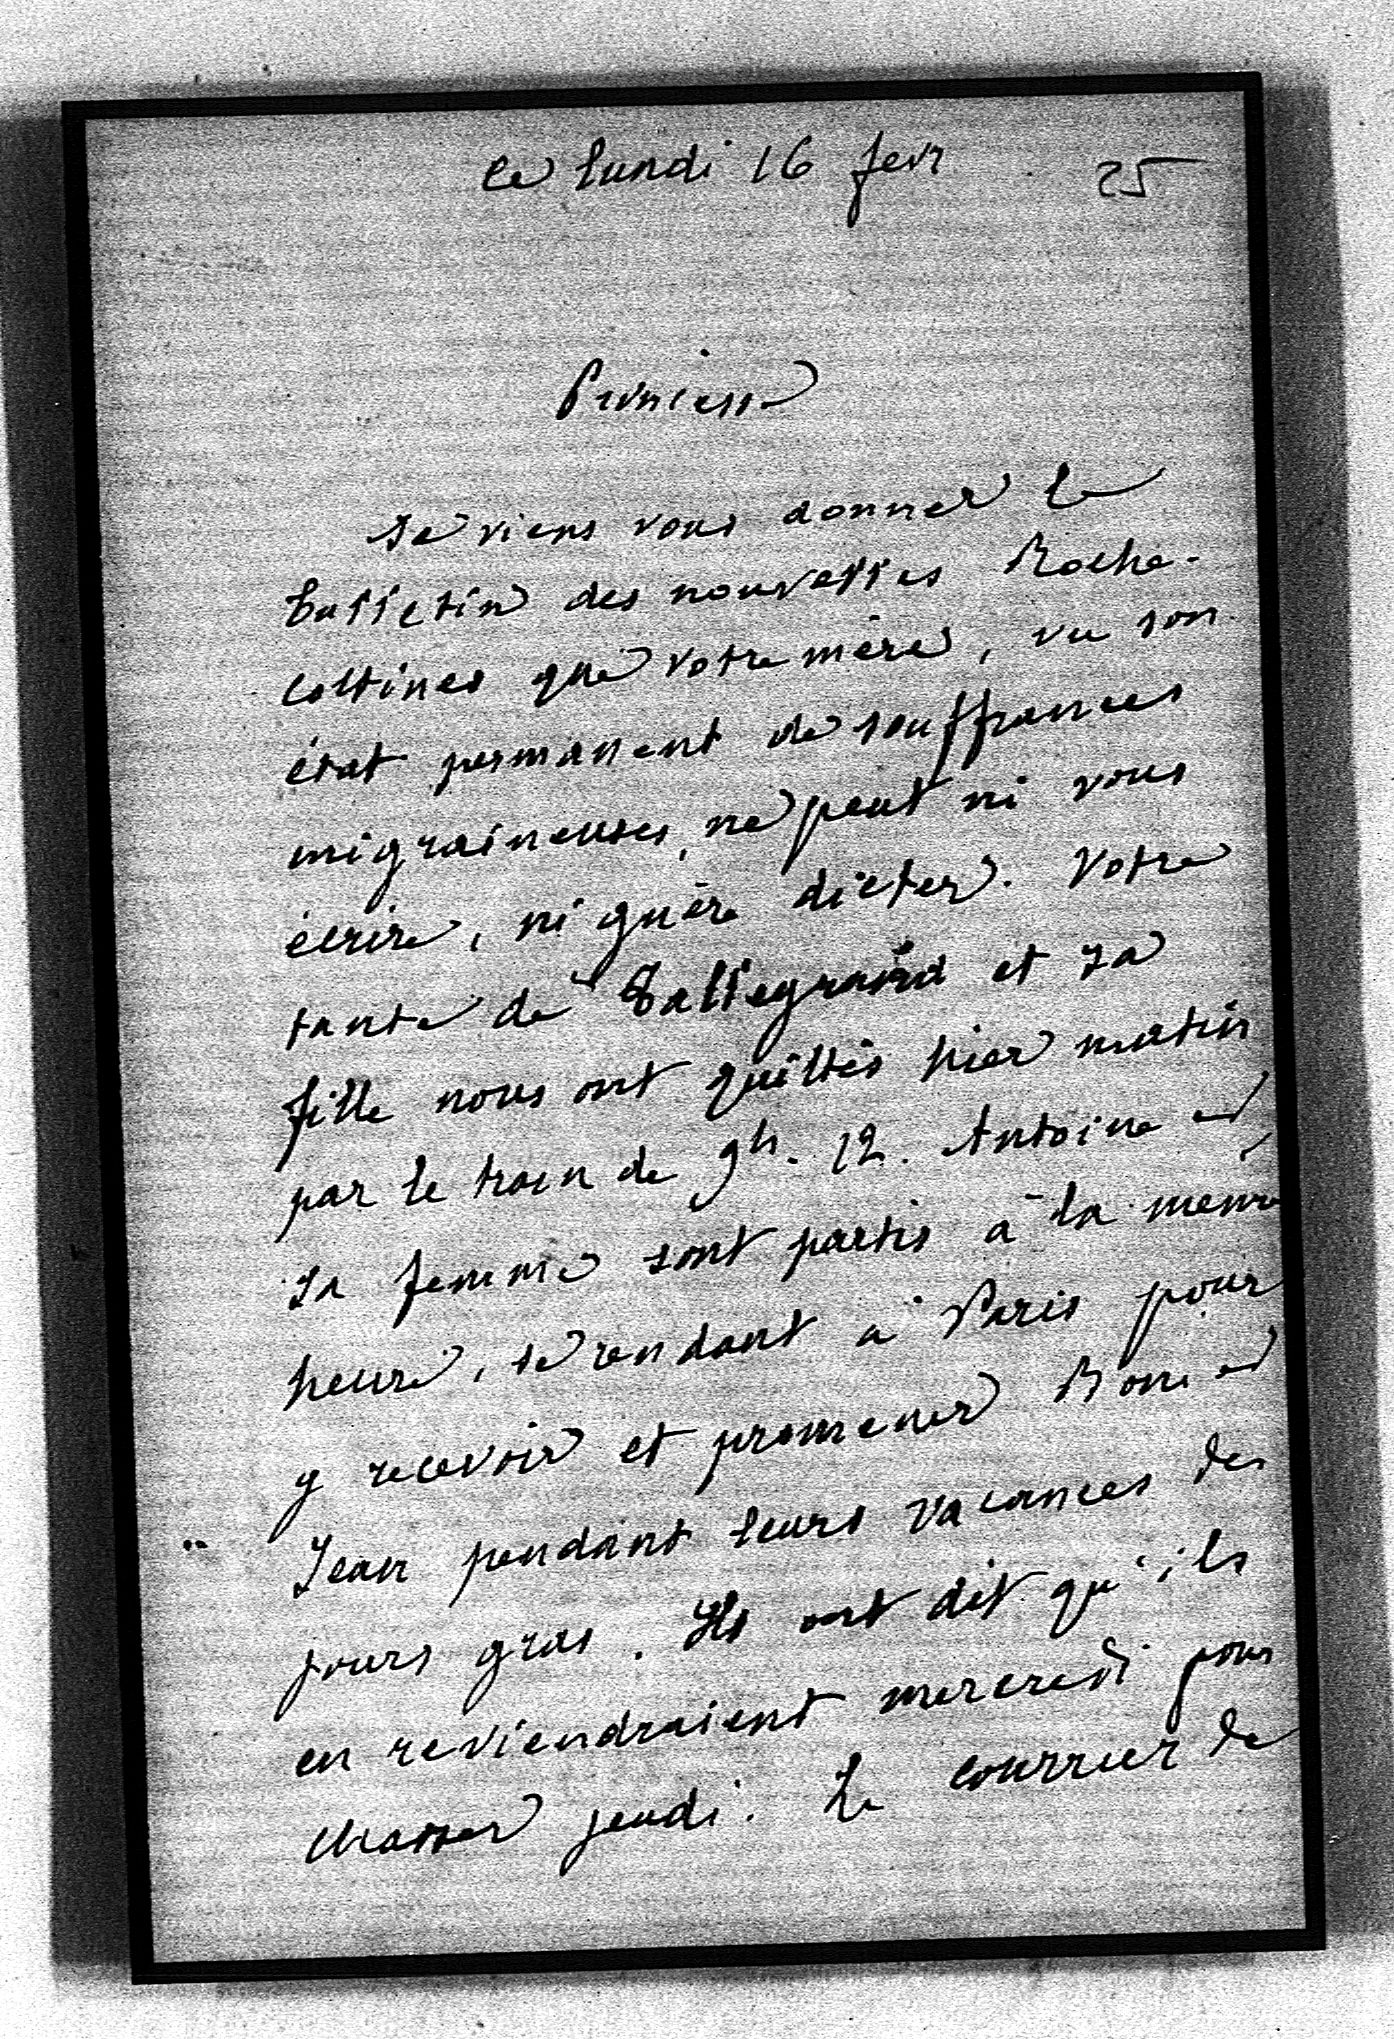 Ce lundi 16 fevr 25
Princesse
Je viens vous donner le
bulletin des nouvelles Roche-
cottines que votre mère, vu son
état permanent de souffrances
migraineuses, ne peut ni vous
écrire, ni guère dicter. Votre
tante de Talleyrand et sa
fille nous ont quittés hier matin
par le train de 9h. 12. Antoine et
sa femme sont partis à la même
heure, se rendant à Paris pour
y recevoir et promener Boni et
Jean pendant leurs vacances des
jours gras. Ils ont dit qu'ils
en reviendraient mercredi pour
chasser jeudi. Le courrier de